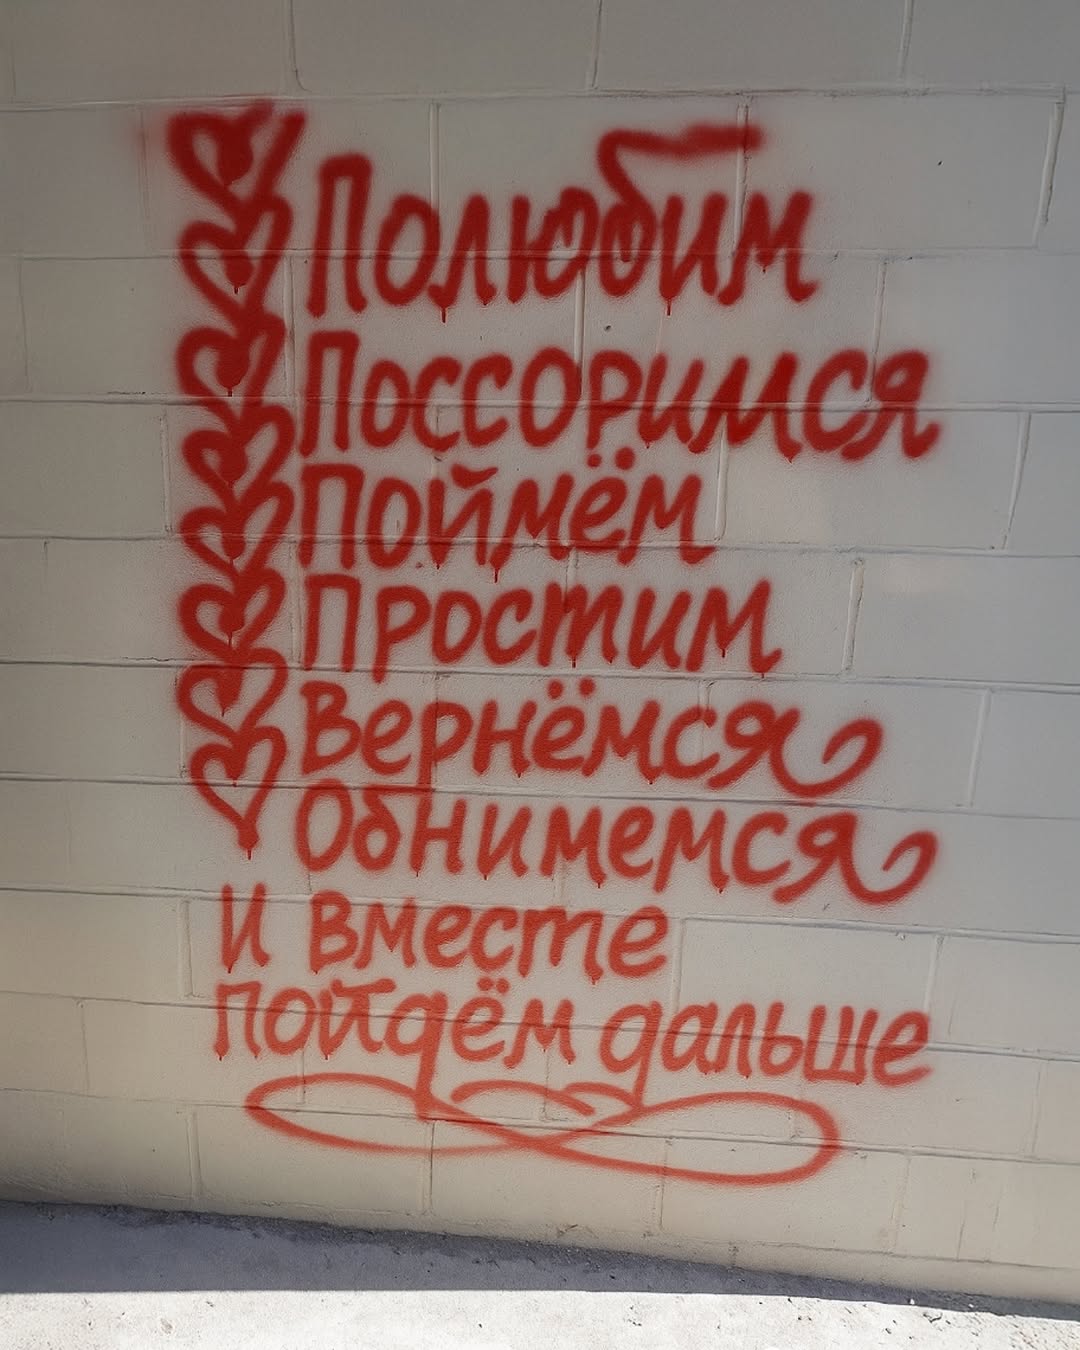 Полюбим
Поссоримся
Поймём
Простим
Вернёмся
Обнимемся
И вместе
пойдём дальше